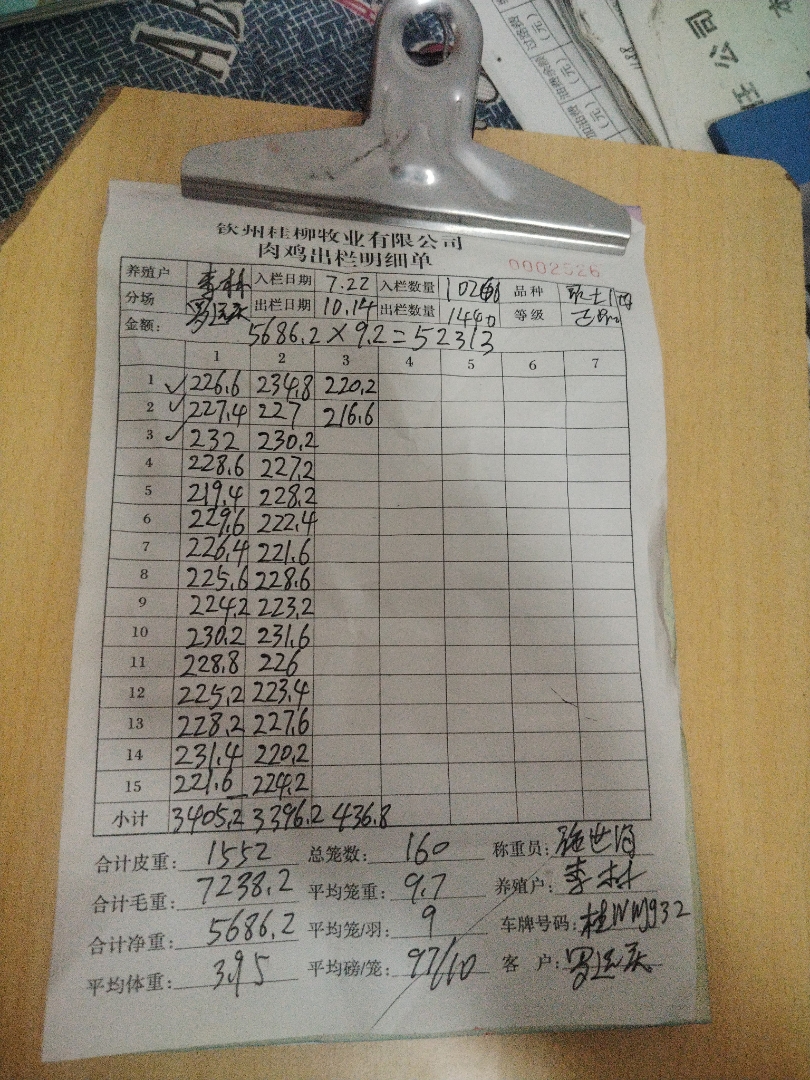 钦州桂柳牧业有限公司
肉鸡出栏明细单
0002526
养殖户 李林 入栏日期 7.22 入栏数量 品种
分场 出栏日期 10.14 出栏数量 1440 等级
金额: 5686.2×9.2=52313
1 2 3 4 5 6 7
1 ✓ 226.6 234.8 220.2
2 ✓ 227.4 227 216.6
3 ✓ 232 230.2
4 228.6 227.2
5 219.4 228.2
6 229.6 222.4
7 226.4 221.6
8 225.6 228.6
9 224.2 223.2
10 230.2 231.6
11 228.8 226
12 225.2 223.4
13 228.2 227.6
14 231.4 220.2
15 221.6 224.2
小计 3405.2 3396.2 436.8
合计皮重: 1552 总笼数: 160 称重员:
合计毛重: 7238.2 平均笼重: 9.7 养殖户: 李林
合计净重: 5686.2 平均笼/羽: 9 车牌号码:
平均体重: 3.95 平均磅/笼: 97/10 客户: